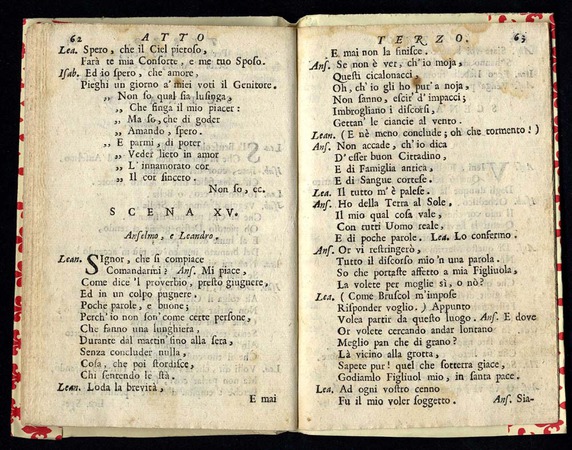 62 ATTO
Lea. Spero, che il Ciel pietoso,
Farà te mia Consorte, e me tuo Sposo.
Isab. Ed io spero, che amore,
Pieghi un giorno a' miei voti il Genitore.
„ Non so qual sia lusinga,
„ Che singa il mio piacer:
„ Ma so, che di goder
„ Amando, spero.
„ E parmi, di poter
„ Veder lieto in amor
„ L' innamorato cor
„ Il cui sincero.
Non so, ec.
SCENA XV.
Anselmo, e Leandro,
Lean. SIgnor, che si compiace
Comandarmi? Ans. Mi piace,
Come dice 'l proverbio, presto giugnere,
Ed in un colpo pugnere.
Poche parole, e buone;
Perch' io non son' come certe persone,
Che fanno una lunghiera,
Durante dal martin' sino alla sera,
Senza concluder nulla,
Cosa, che poi stordisce,
Chi sentendo le stà.
Lean. Loda la brevità,
E mai
TERZO. 63
E mai non la finisce.
Ans. Se non è ver, ch' io moja,
Questi cicalonacci
Oh, ch' io gli ho pur' a noja,
Non sanno, escir' d' impacci;
Imbrogliano i discorsi,
Gettan' le ciancie al vento.
Lean. (E nè meno conclude; oh che tormento!)
Ans. Non accade, ch' io dica
D' esser buon Cittadino,
E di Famiglia antica,
E di Sangue cortese.
Lea. Il tutto m' è palese.
Ans. Ho della Terra al Sole,
Il mio qual cosa vale,
Con tutti Uomo reale,
E di poche parole. Lea. Lo confermo.
Ans. Or vi restringerò,
Tutto il discorso mio 'n una parola.
So che portaste affetto a mia Figliuola,
La volete per moglie sì, o nò?
Lea. (Come Bruscol m' impose
Risponder voglio.) Appunto
Volea partir da questo luogo. Ans. E dove
Or volete cercando andar lontano
Meglio pan che di grano?
Là vicino alla grotta,
Sapete pur! quel che sotterra giace,
Godiamlo Figliuol mio, in santa pace.
Lea. Ad ogni vostro cenno
Fu il mio voler soggetto. Ans. Sia-